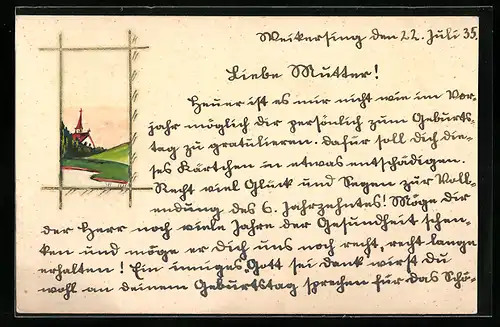 Weikersing den 22. Juli 35.
Liebe Mutter!
Heuer ist es mir nicht wie im Vor-
jahr möglich dir persönlich zum Geburts-
tag zu gratulieren. Dafür soll dich die-
ses Kärtchen in etwas entschädigen.
Recht viel Glück und Segen zur Voll-
endung des 6. Jahrzehntes! Möge dir
der Herr noch viele Jahre der Gesundheit schen-
ken und möge er dich uns noch recht, recht lange
erhalten! Ein inniges „Gott sei dank wirst du
wohl an deinem Geburtstag sprechen für das Schö-